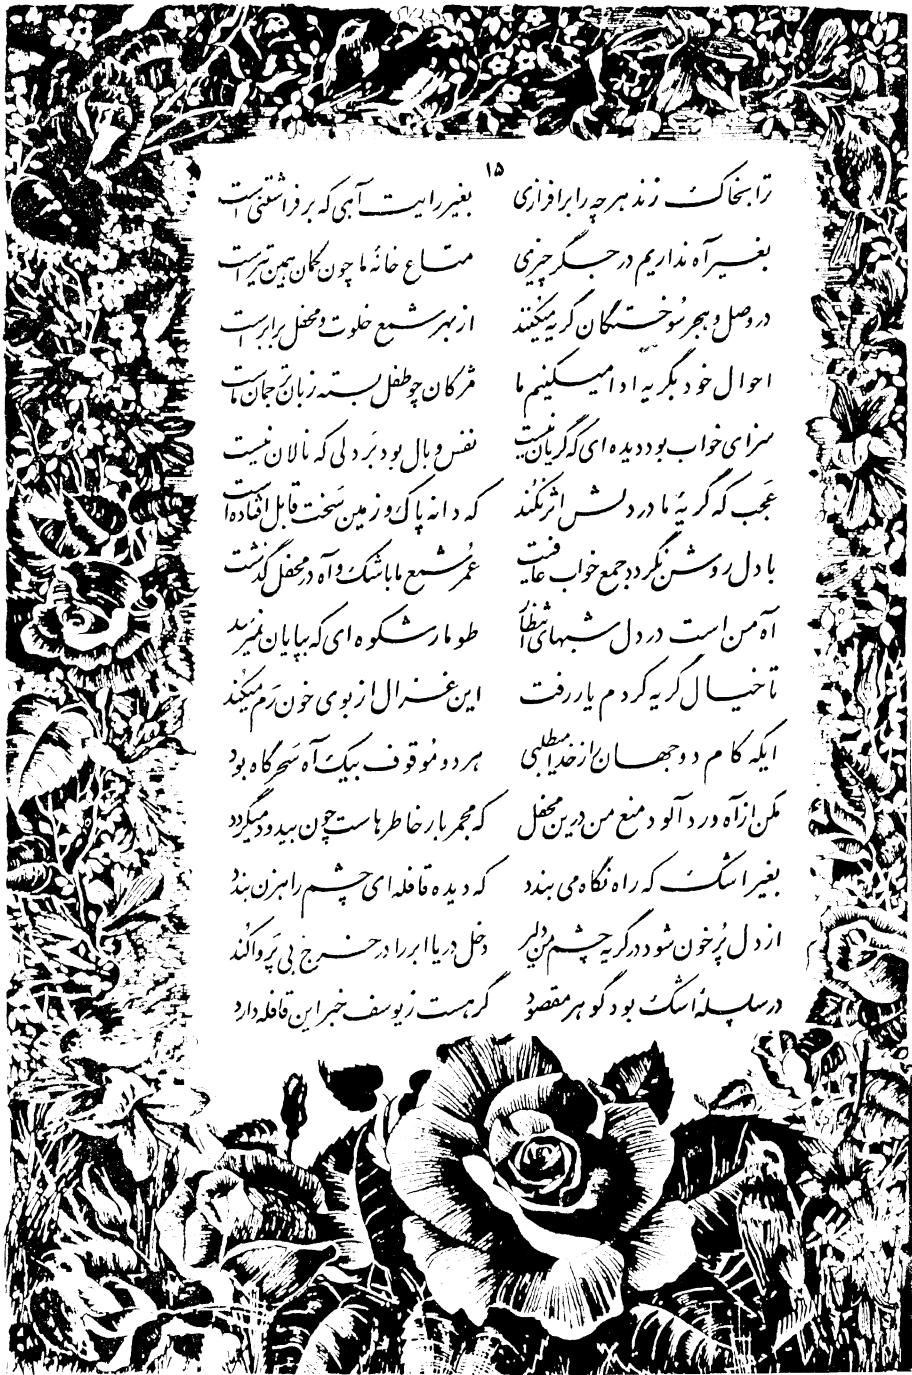 ۱۵
ترا بخاک زند هر چه را برافرازی بغیر رایت آهی که برفراشتنی است
بغیر آه نداریم در جگر چیزی متاع خانهٔ ما چون کمان همین تیر است
در وصل و هجر سوختگان گریه میکنند از بهر شمع خلوت و محفل برابر است
احوال خود بگریه ادا میکنیم ما مژگان چو طفل بسته زبان ترجمان ماست
سزای خواب بود دیده ای که گریان نیست نفس وبال بود بر دلی که نالان نیست
عجب که گریهٔ ما در دلش اثر نکند که دانه پاک و زمین سخت قابل افتاده است
با دل روشن نگردد جمع خواب عافیت عمر شمع ما باشک و آه در محفل گذشت
آه من است در دل شبهای انتظار طومار شکوه ای که بپایان نمیرسد
تا خیال گریه کردم یار رفت این غزال از بوی خون رم میکند
ایکه کام دو جهان را از خدا میطلبی هر دو موقوف بیک آه سحرگاه بود
مکن از آه درد آلود منع من درین محفل که مجمر بار خاطرهاست چون بی دود میگردد
بغیر اشک که راه نگاه می بندد که دیده قافله ای چشم راهزن بندد
از دل پرخون شود در گریه چشم من دلیر دخل دریا ابر را در خرج بی پروا کند
در سلسلهٔ اشک بود گوهر مقصود گر هست ز یوسف خبر این قافله دارد